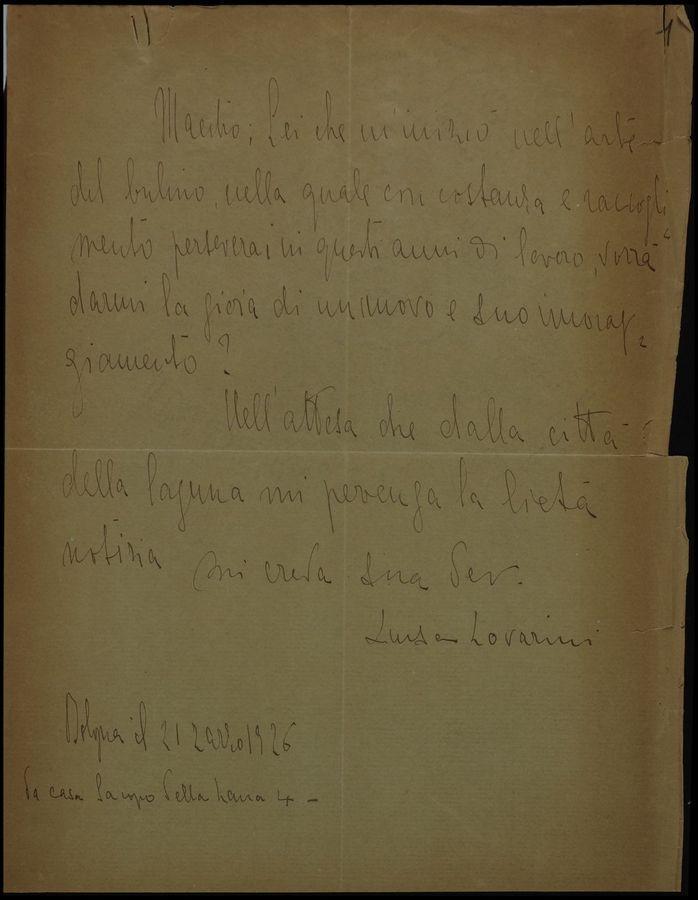 Maestro; Lei che m'iniziò nell'arte
del bulino, nella quale con costanza e raccogli
mento perseverai in questi anni di lavoro, vorrà
darmi la gioia di un nuovo e suo incorag-
giamento?
Nell'attesa che dalla città
della laguna mi pervenga la lieta
notizia mi creda Sua Dev.
Luisa Lovarini
Bologna il 21 Marzo 1926
Da casa Jacopo della Lana 4 -